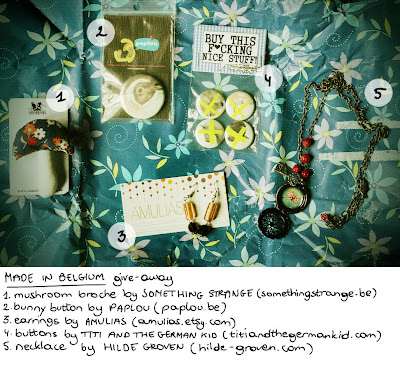 2
3
paplou
BUY THIS
F*CKING
NICE STUFF!
4
5
1
AMULIAS
3
MADE IN BELGIUM give-away
1. mushroom broche by SOMETHING STRANGE (somethingstrange.be)
2. bunny button by PAPLOU (paplou.be)
3. earrings by AMULIAS (amulias.etsy.com)
4. buttons by TITI AND THE GERMAN KID (titiandthegermankid.com)
5. necklace by HILDE GROVEN (hilde-groven.com)